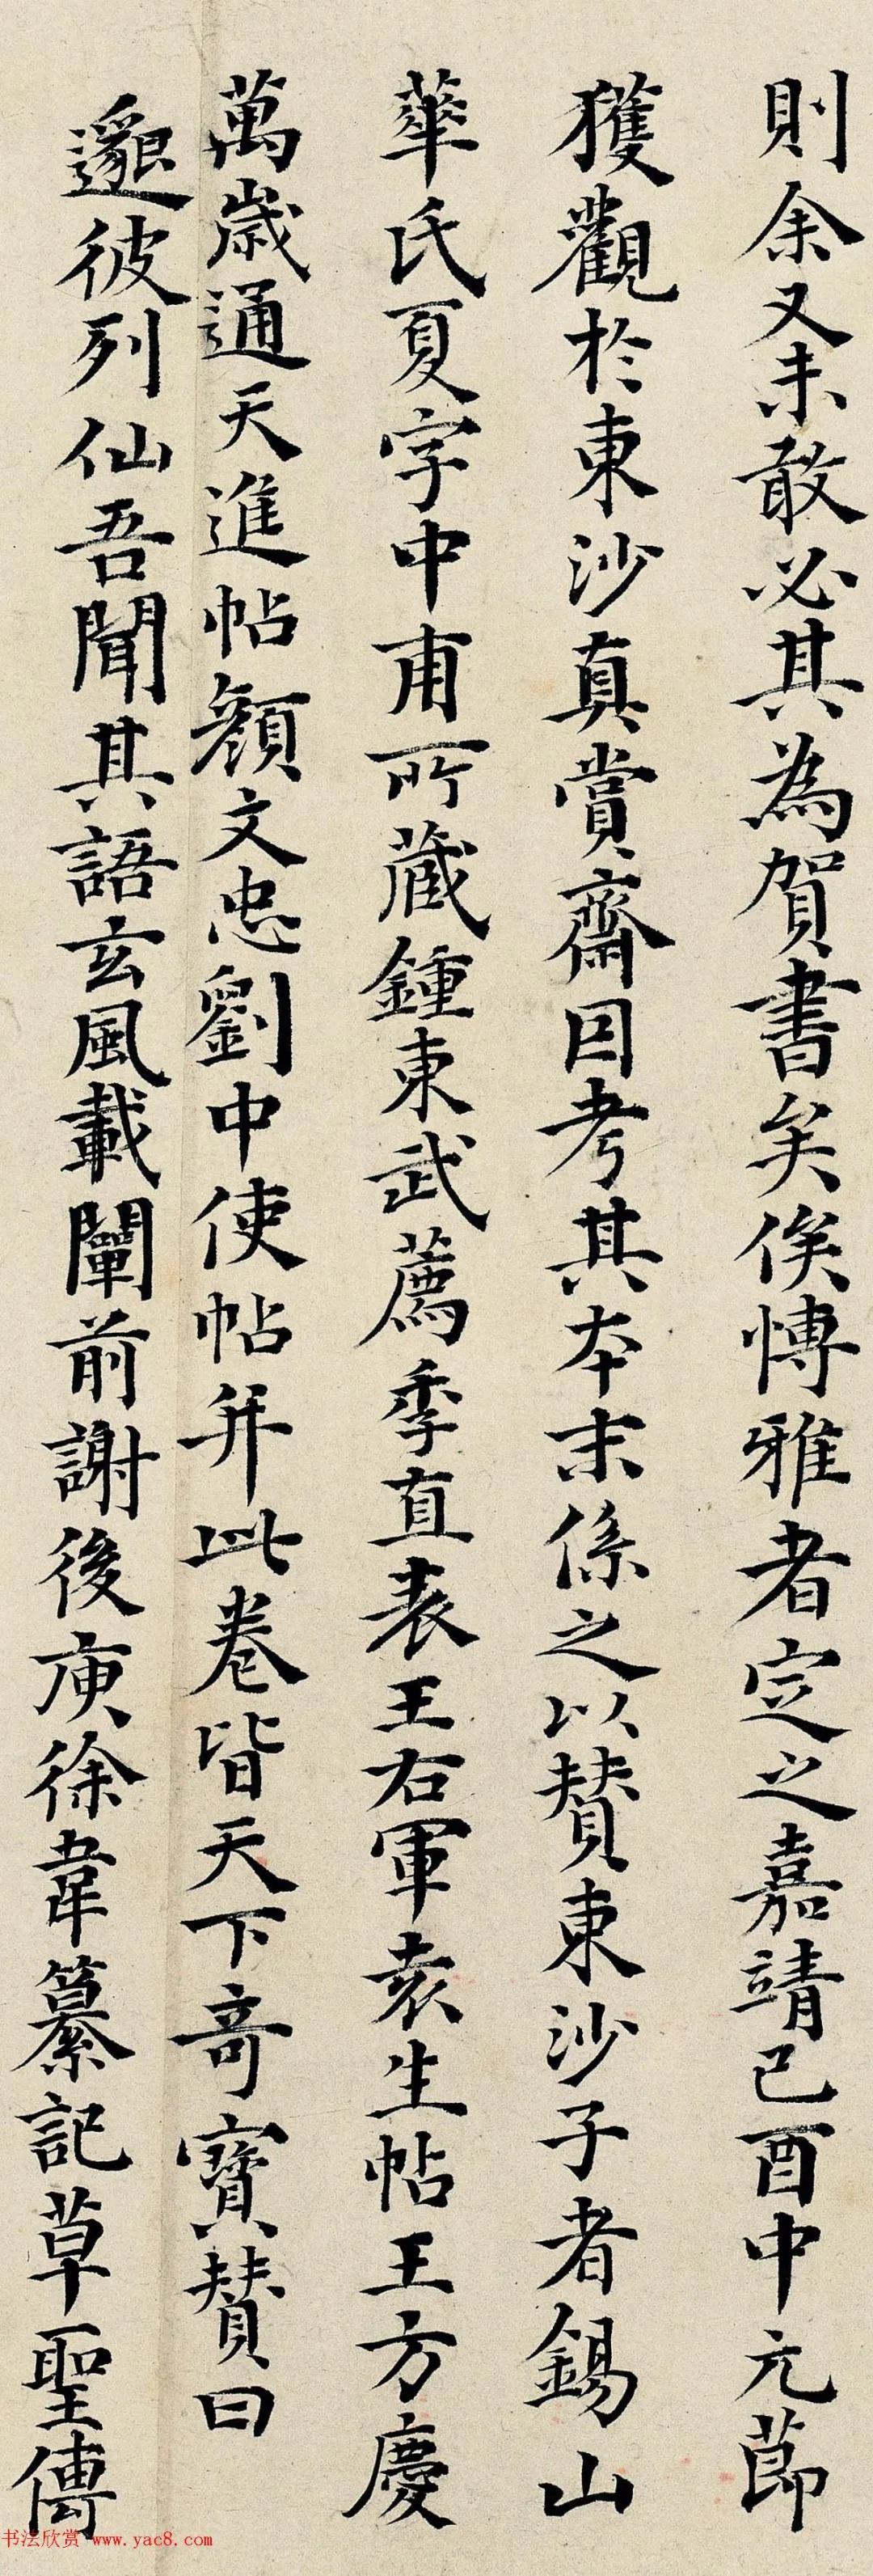 則余又未敢必其為賀書矣俟愽雅者定之嘉靖己酉中元莭
獲觀於東沙真賞齋因考其本末係之以賛東沙子者錫山
華氏夏字中甫所藏鍾東武薦季直表王右軍袁生帖王方慶
萬歳通天進帖顔文忠劉中使帖并此卷皆天下奇寳賛曰
邈彼列仙吾聞其語玄風載闡前謝後庾徐韋纂記草聖傳
书法欣赏 www.yac8.com